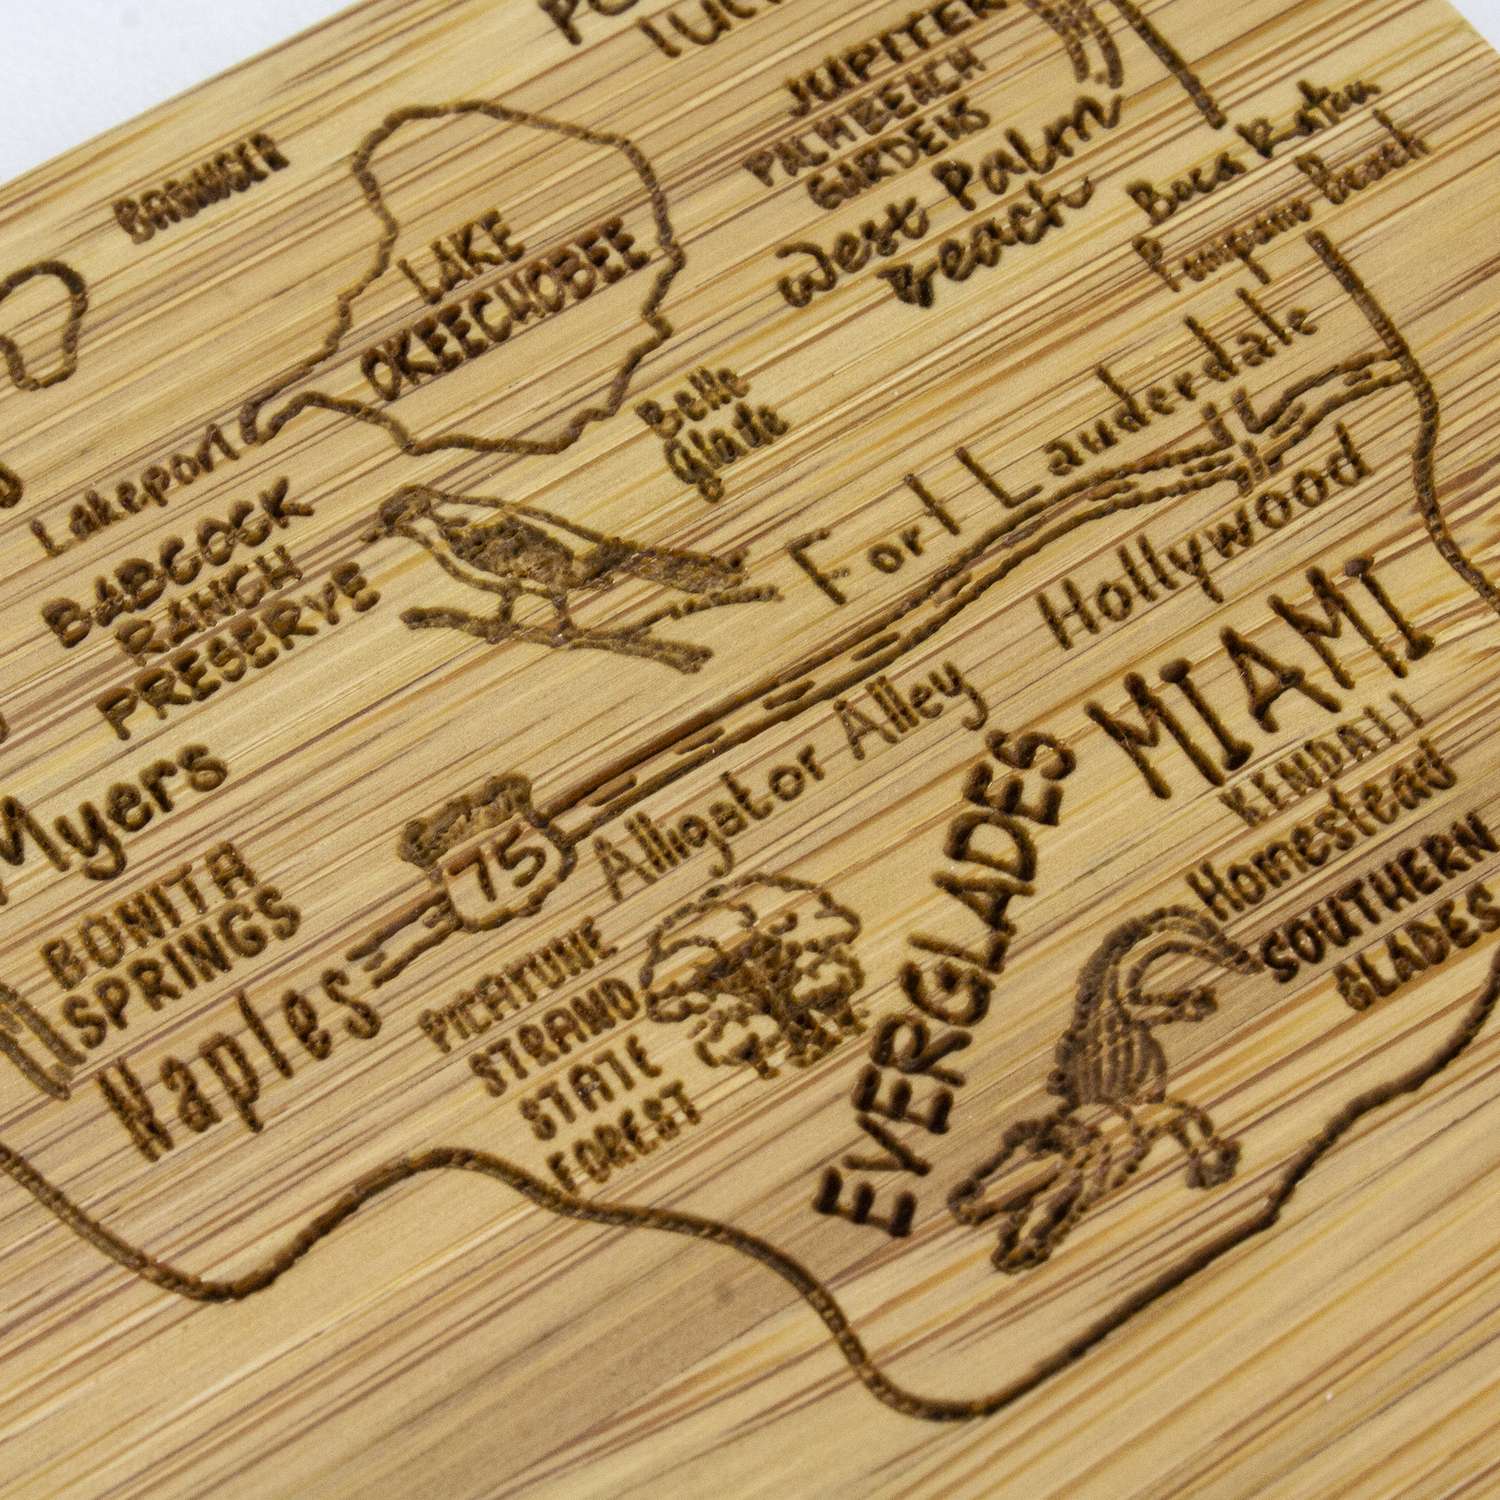 JUPITER
PALM BEACH
GARDENS
West Palm
Beach
Boca Raton
Pompano Beach
LAKE
OKEECHOBEE
Belle
Glade
Fort Lauderdale
Hollywood
MIAMI
KENDALL
Homestead
SOUTHERN
GLADES
Lakeport
BABCOCK
RANCH
PRESERVE
Myers
BONITA
SPRINGS
Naples
75
Alligator Alley
PICAYUNE
STRAND
STATE
FOREST
EVERGLADES